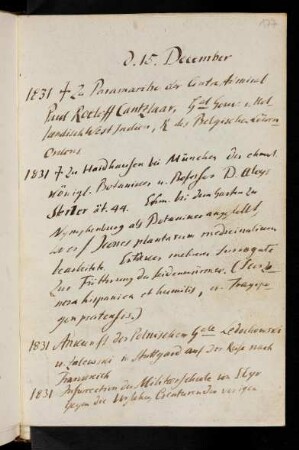 d. 15. December
1831 † Zu Paramaribo der Contre Admiral
Paul Roeloff Cantzlaar, Gen. Gouv. v. Hol-
ländisch West Indien, R. des Belgischen Löwen
Ordens
1831 † Zu Haidhausen bei München der ehmal.
königl. Botaniker u. Professor D. Aloys
Sterler ät. 44. bei dem Garten zu
Nymphenburg als Botaniker angestellt,
Icones plantarum medicinalium
bearbeitete. mehrere Surrogate
zur Fütterung der Seidenwürmer. (Scorzo-
nera hispanica et humilis, Tragopo-
gon pratensis.)
1831 Ankunft des Polnischen Gen. Ledochowski
u. Zalewski in Stuttgard auf der Reise nach
Frankreich
1831 Insurrection der Militärschule
gegen die